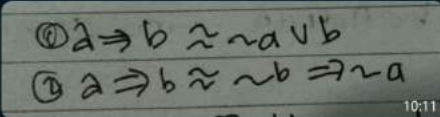 ① a ⇒ b ≈ ~a ∨ b
② a ⇒ b ≈ ~b ⇒ ~a
10:11